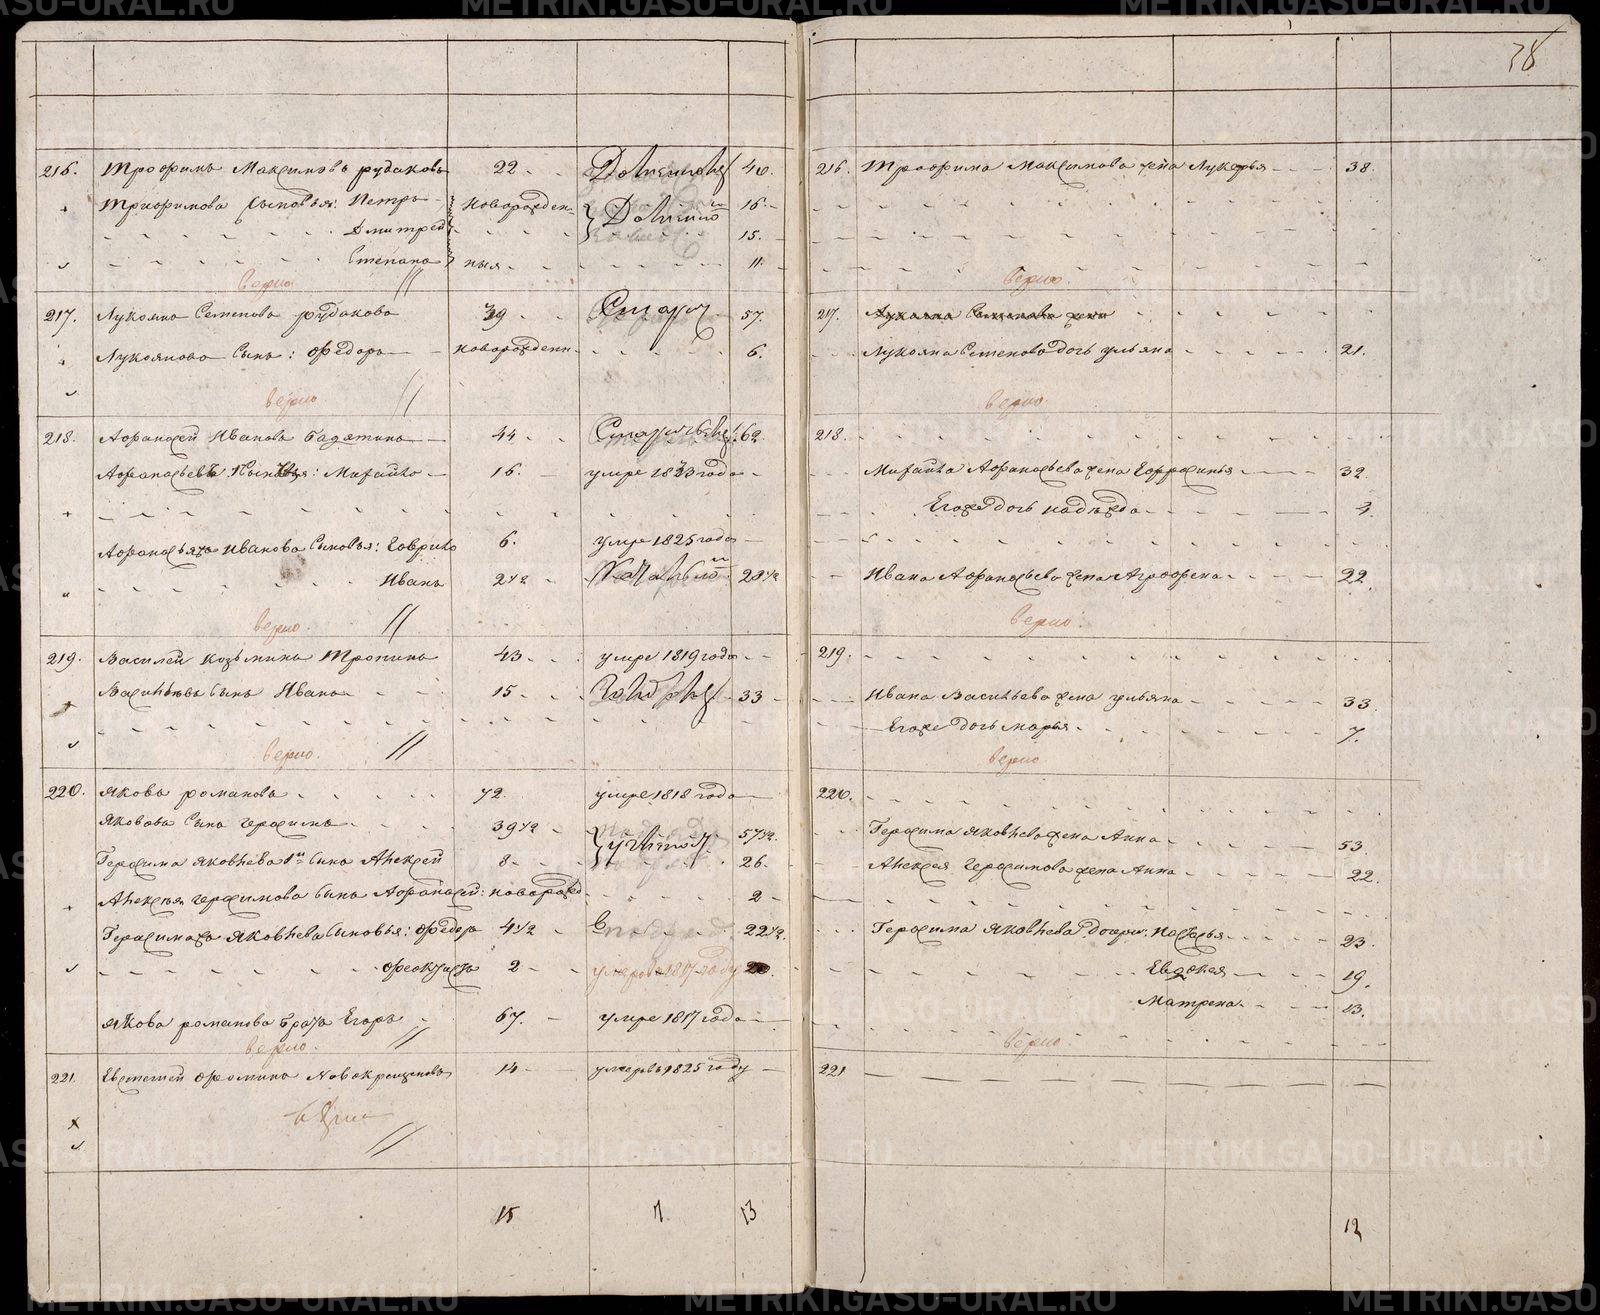 38
216. Трофимъ Максимовъ рудаковъ 22. 40.
Трофимова Сыновья: Петръ новорожден- 16.
Дмитрей 15.
Степанъ ныя 11.
верно
217. Лукоянъ Семеновъ рудаковъ 39 57.
Лукояновъ Сынъ: Федоръ новорожденн. 6.
верно
218. Афанасей Ивановъ 44 62.
Афанасьевы Сыновья: Михайло 16. умре 1823 года
Афанасья Иванова Сыновья: Гаврило 6. умре 1825 года
Иванъ 2 1/2 20 1/2
верно
219. Василей Козьминъ Тропинъ 43 умре 1819 года
Васильевъ Сынъ Иванъ 15 33
верно.
220. Яковъ романовъ 72. умре 1818 года
Яковова Сынъ Герасимъ 39 1/2 57 1/2
Герасима Яковлева 1й Сынъ Алексей 8 26.
Алексея Герасимова Сынъ Афанасей: новорожд 2
Герасима Яковлева Сыновья: Федоръ 4 1/2 22 1/2.
Феоктистъ 2 умеръ 1817 году
Якова романова братъ Егоръ 67. умре 1817 года
верно.
221. Евстегней Фоминъ Новокрещеновъ 14 умеръ 1825 году
верно
15 7 13
216. Трофима Максимова жена Лукерья 38.
верно.
217. Лукояна Семенова жена
Лукояна Семенова дочь ульяна 21.
верно.
218.
Михайла Афанасьева жена Ефросинья 32.
Егоже дочь надежда 3.
Ивана Афанасьева жена Агрофена 22.
верно.
219.
Ивана Васильева жена ульяна 33.
Егоже дочь марья 7.
верно
220.
Герасима Яковлева жена Анна 53.
Алексея Герасимова жена Анна 22.
Герасима Яковлева дочери: Настасья 23.
Евдокея 19.
Матрена 13.
верно.
221
12
METRIKI.GASO-URAL.RU